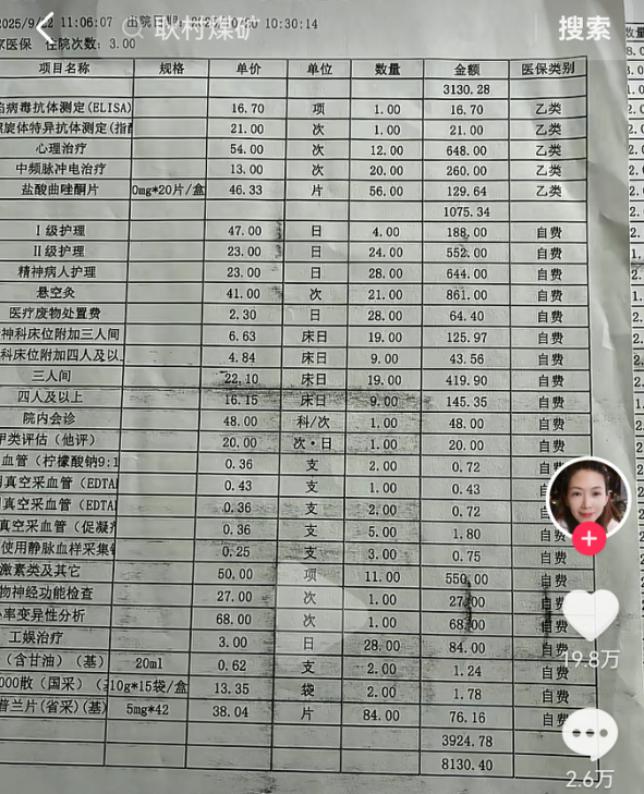 2025/9/22 11:06:07 出院日期: 10:30:14
耿村煤矿
搜索
家医保 住院次数: 3.00
项目名称 规格 单价 单位 数量 金额 医保类别
3130.28
病毒抗体测定(ELISA) 16.70 项 1.00 16.70 乙类
螺旋体特异抗体测定(指 21.00 次 1.00 21.00 乙类
心理治疗 54.00 次 12.00 648.00 乙类
中频脉冲电治疗 13.00 次 20.00 260.00 乙类
盐酸曲唑酮片 0mg*20片/盒 46.33 片 56.00 129.64 乙类
1075.34
I级护理 47.00 日 4.00 188.00 自费
II级护理 23.00 日 24.00 552.00 自费
精神病人护理 23.00 日 28.00 644.00 自费
悬空灸 41.00 次 21.00 861.00 自费
医疗废物处置费 2.30 日 28.00 64.40 自费
神科床位附加三人间 6.63 床日 19.00 125.97 自费
科床位附加四人及以 4.84 床日 9.00 43.56 自费
三人间 22.10 床日 19.00 419.90 自费
四人及以上 16.15 床日 9.00 145.35 自费
院内会诊 48.00 科/次 1.00 48.00 自费
甲类评估（他评） 20.00 次·日 1.00 20.00 自费
血管（柠檬酸钠9:1 0.36 支 2.00 0.72 自费
真空采血管（EDTA 0.43 支 1.00 0.43 自费
真空采血管（EDTA 0.36 支 2.00 0.72 自费
真空采血管（促凝 0.36 支 5.00 1.80 自费
使用静脉血样采集 0.25 支 3.00 0.75 自费
激素类及其它 50.00 项 11.00 550.00 自费
物神经功能检查 27.00 次 1.00 27.00 自费
率变异性分析 68.00 次 1.00 68.00 自费
工娱治疗 3.00 日 28.00 84.00 自费
（含甘油）（基） 20ml 0.62 支 2.00 1.24 自费
000散（国采） 10g*15袋/盒 13.35 袋 2.00 1.78 自费
普兰片(省采)(基) 5mg*42 38.04 片 84.00 76.16 自费
3924.78
8130.40
19.8万
2.6万